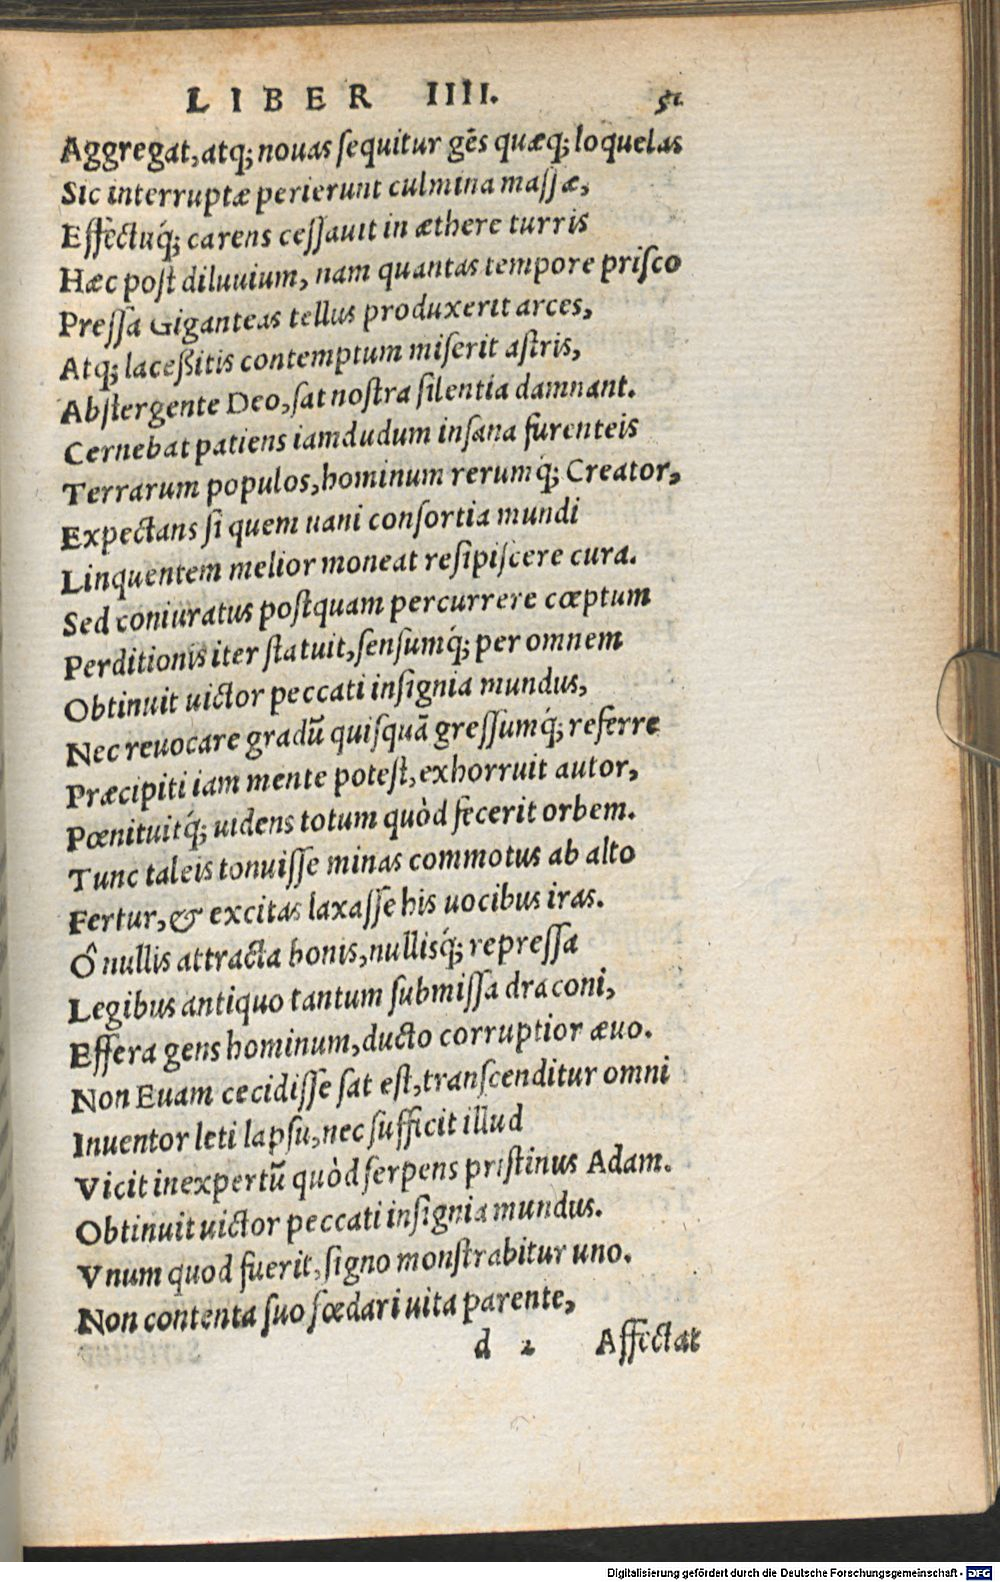 LIBER IIII. 51
Aggregat, atq; nouas ſequitur gēs quæq; loquelas
Sic interruptæ perierunt culmina maſſæ,
Effectuq́; carens ceſſauit in æthere turris
Hæc poſt diluuium, nam quantas tempore priſco
Preſſa Giganteas tellus produxerit arces,
Atq; laceßitis contemptum miſerit aſtris,
Abſtergente Deo, ſat noſtra ſilentia damnant.
Cernebat patiens iamdudum inſana furenteis
Terrarum populos, hominum rerumq́; Creator,
Expectans ſi quem uani conſortia mundi
Linquentem melior moneat reſipiſcere cura.
Sed coniuratus poſtquam percurrere cœptum
Perditionis iter ſtatuit, ſenſumq́; per omnem
Obtinuit uictor peccati inſignia mundus,
Nec reuocare gradū quiſquā greſſumq́; referre
Præcipiti iam mente poteſt, exhorruit autor,
Pœnituitq́; uidens totum quòd fecerit orbem.
Tunc taleis tonuiſſe minas commotus ab alto
Fertur, & excitas laxaſſe his uocibus iras.
Ô nullis attracta bonis, nullisq́; repreſſa
Legibus antiquo tantum ſubmiſſa draconi,
Effera gens hominum, ducto corruptior æuo.
Non Euam cecidiſſe ſat eſt, tranſcenditur omni
Inuentor leti lapſu, nec ſufficit illud
Vicit inexpertū quòd ſerpens priſtinus Adam.
Obtinuit uictor peccati inſignia mundus.
Vnum quod fuerit, ſigno monſtrabitur uno.
Non contenta ſuo fœdari uita parente,
d 2 Affectat
Digitalisierung gefördert durch die Deutsche Forschungsgemeinschaft - DFG